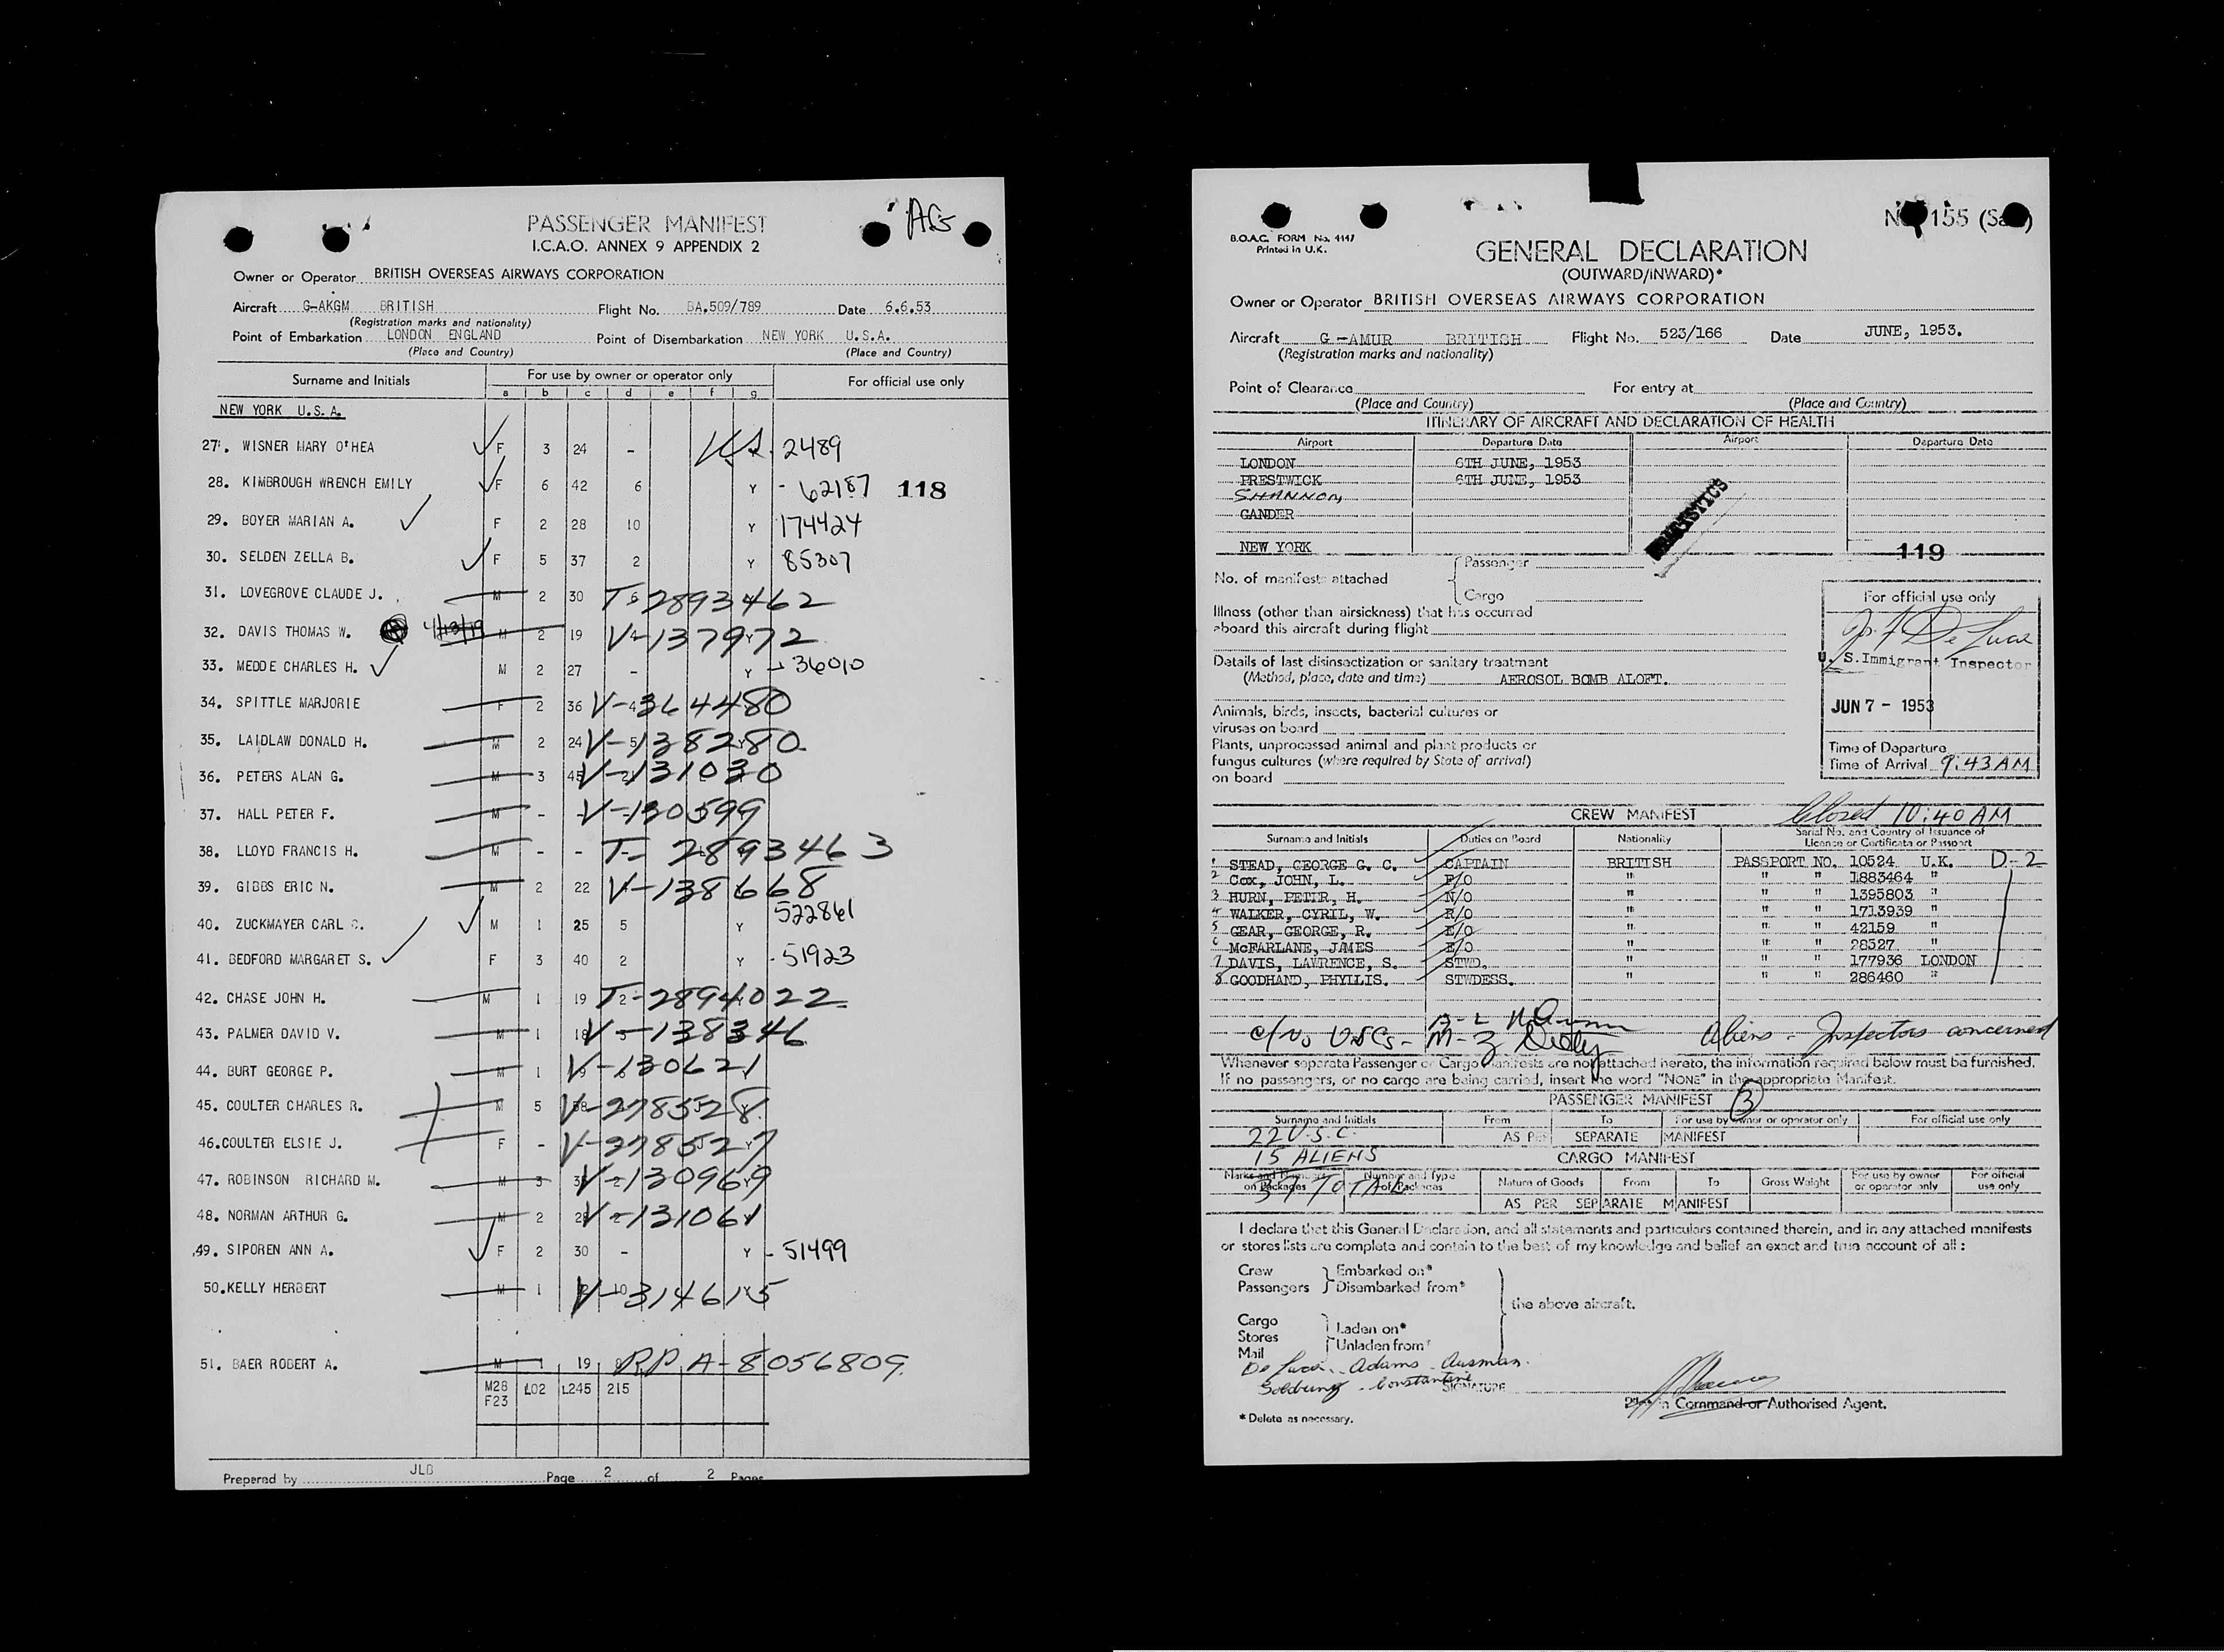 AG
PASSENGER MANIFEST
I.C.A.O. ANNEX 9 APPENDIX 2
Owner or Operator BRITISH OVERSEAS AIRWAYS CORPORATION
Aircraft G-AKGM BRITISH Flight No. BA.509/789 Date 6.6.53
(Registration marks and nationality)
Point of Embarkation LONDON ENGLAND Point of Disembarkation NEW YORK U.S.A.
(Place and Country) (Place and Country)
Surname and Initials For use by owner or operator only For official use only
a b c d e f g
NEW YORK U.S.A.
27. WISNER MARY O'HEA F 3 24 - 2489
28. KIMBROUGH WRENCH EMILY F 6 42 6 Y - 62187 118
29. BOYER MARIAN A. F 2 28 10 Y 174424
30. SELDEN ZELLA B. F 5 37 2 Y 85307
31. LOVEGROVE CLAUDE J. M 2 30 T-2893462
32. DAVIS THOMAS W. M 2 19 V-137972
33. MEDDE CHARLES H. M 2 27 - Y - 36010
34. SPITTLE MARJORIE F 2 36 V-364480
35. LAIDLAW DONALD H. M 2 24 V-138280
36. PETERS ALAN G. M 3 45 V-131030
37. HALL PETER F. M - - V-130599
38. LLOYD FRANCIS H. M - - T-2893463
39. GIBBS ERIC N. M 2 22 V-138668
40. ZUCKMAYER CARL M 1 25 5 Y 522861
41. BEDFORD MARGARET S. F 3 40 2 Y - 51923
42. CHASE JOHN H. M 1 19 2 T-2894022
43. PALMER DAVID V. M 1 18 V-138346
44. BURT GEORGE P. M 1 V-130621
45. COULTER CHARLES R. M 5 V-278528
46. COULTER ELSIE J. F - V-278527
47. ROBINSON RICHARD M. M 3 V-130969
48. NORMAN ARTHUR G. M 2 V-131061
49. SIPOREN ANN A. F 2 30 - Y - 51499
50. KELLY HERBERT M 1 10 V-314615
51. BAER ROBERT A. M 1 19 RP A-8056809
M28 L02 L245 215
F23
Prepared by JLB Page 2 of 2 Pages
155
B.O.A.C. FORM No. 4147
Printed in U.K.
GENERAL DECLARATION
(OUTWARD/INWARD)*
Owner or Operator BRITISH OVERSEAS AIRWAYS CORPORATION
Aircraft G-AMUR BRITISH Flight No. 523/166 Date JUNE, 1953.
(Registration marks and nationality)
Point of Clearance For entry at
(Place and Country) (Place and Country)
ITINERARY OF AIRCRAFT AND DECLARATION OF HEALTH
Airport Departure Date Airport Departure Date
LONDON 6TH JUNE, 1953
PRESTWICK 6TH JUNE, 1953
SHANNON
GANDER
NEW YORK 119
No. of manifests attached Passenger
Cargo
Illness (other than airsickness) that has occurred
aboard this aircraft during flight
Details of last disinsectization or sanitary treatment
(Method, place, date and time) AEROSOL BOMB ALOFT.
Animals, birds, insects, bacterial cultures or
viruses on board
Plants, unprocessed animal and plant products or
fungus cultures (where required by State of arrival)
on board
For official use only
U. S. Immigrant Inspector
JUN 7 - 1953
Time of Departure
Time of Arrival 9:43 AM
CREW MANIFEST Closed 10:40 AM
Surname and Initials Duties on Board Nationality Serial No. and Country of Issuance of
Licence or Certificate or Passport
1 STEAD, GEORGE G. C. CAPTAIN BRITISH PASSPORT NO. 10524 U.K. D-2
2 COX, JOHN, L. F/O " " " 1883464 "
3 HURN, PETER, H. N/O " " " 1395803 "
4 WALKER, CYRIL, W. R/O " " " 1713939 "
5 GEAR, GEORGE, R. E/O " " " 42159 "
6 McFARLANE, JAMES E/O " " " 28527 "
7 DAVIS, LAWRENCE, S. STWD. " " " 177936 LONDON
8 GOODHAND, PHYLLIS. STWDESS. " " " 286460 "
Aliens - Inspectors concerned
Whenever separate Passenger or Cargo Manifests are not attached hereto, the information required below must be furnished.
If no passengers, or no cargo are being carried, insert the word "NONE" in the appropriate Manifest.
PASSENGER MANIFEST 3
Surname and Initials From To For use by owner or operator only For official use only
22 U.S.C. AS PER SEPARATE MANIFEST
15 ALIENS
CARGO MANIFEST
37 TOTAL
Marks and Numbers on Packages Number and Type of Packages Nature of Goods From To Gross Weight For use by owner or operator only For official use only
AS PER SEPARATE MANIFEST
I declare that this General Declaration, and all statements and particulars contained therein, and in any attached manifests
or stores lists are complete and contain to the best of my knowledge and belief an exact and true account of all :
Crew Embarked on*
Passengers Disembarked from*
the above aircraft.
Cargo
Stores Laden on*
Mail Unladen from*
De Luca - Adams - Ausman.
Goldberg - Constantine
SIGNATURE
Pilot in Command or Authorised Agent.
* Delete as necessary.